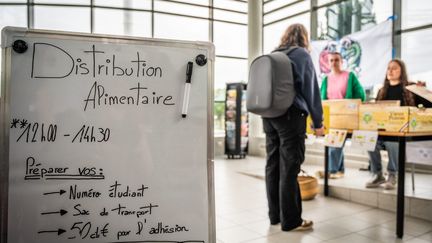 Distribution
Alimentaire
**12h00 - 14h30
Préparer vos:
→ Numéro étudiant
→ Sac de transport
→ 50 cts pour l'adhésion